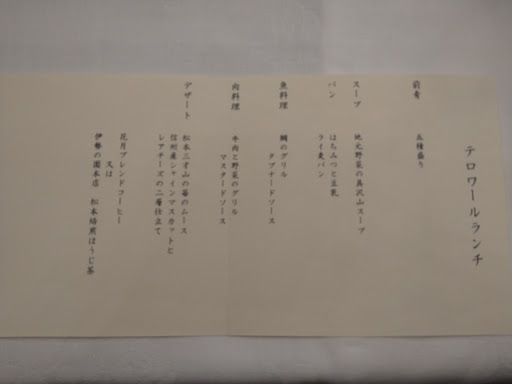 テロワールランチ
前肴
五種盛り
スープ
地元野菜の具沢山スープ
パン
はちみつと豆乳
ライ麦パン
魚料理
鯛のグリル
タプナードソース
肉料理
牛肉と野菜のグリル
マスタードソース
デザート
松本三才山の苺のムース
信州産シャインマスカットと
レアチーズの二層仕立て
花月ブレンドコーヒー
又は
伊勢の園本店 松本焙煎ほうじ茶